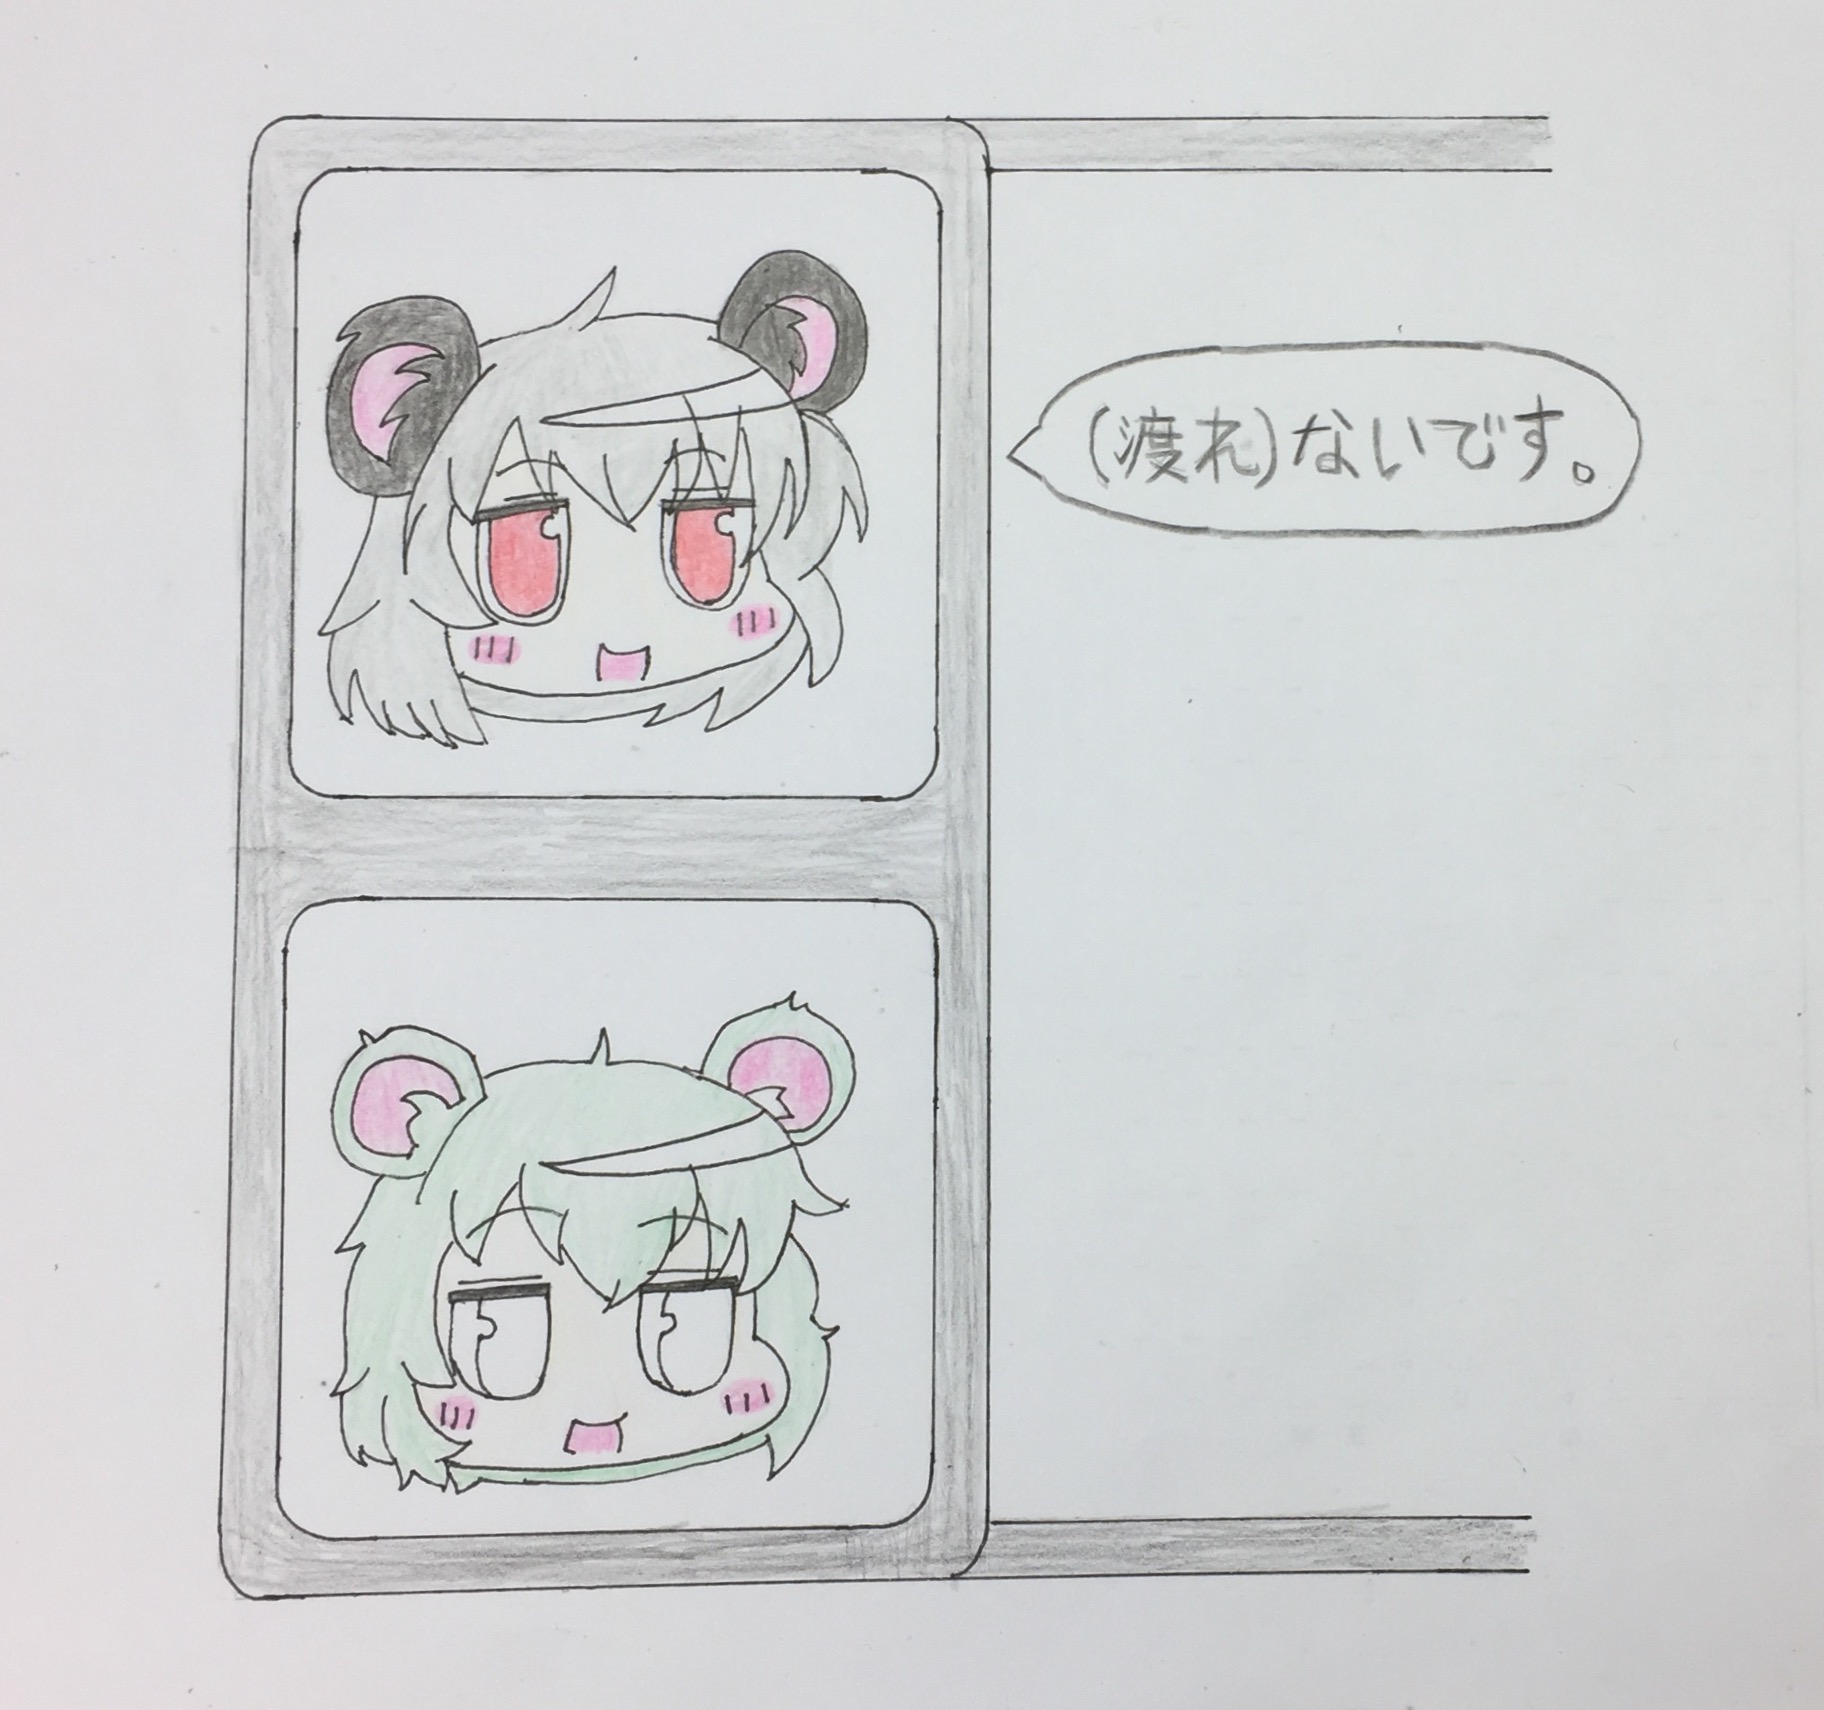 (渡れ)ないです。